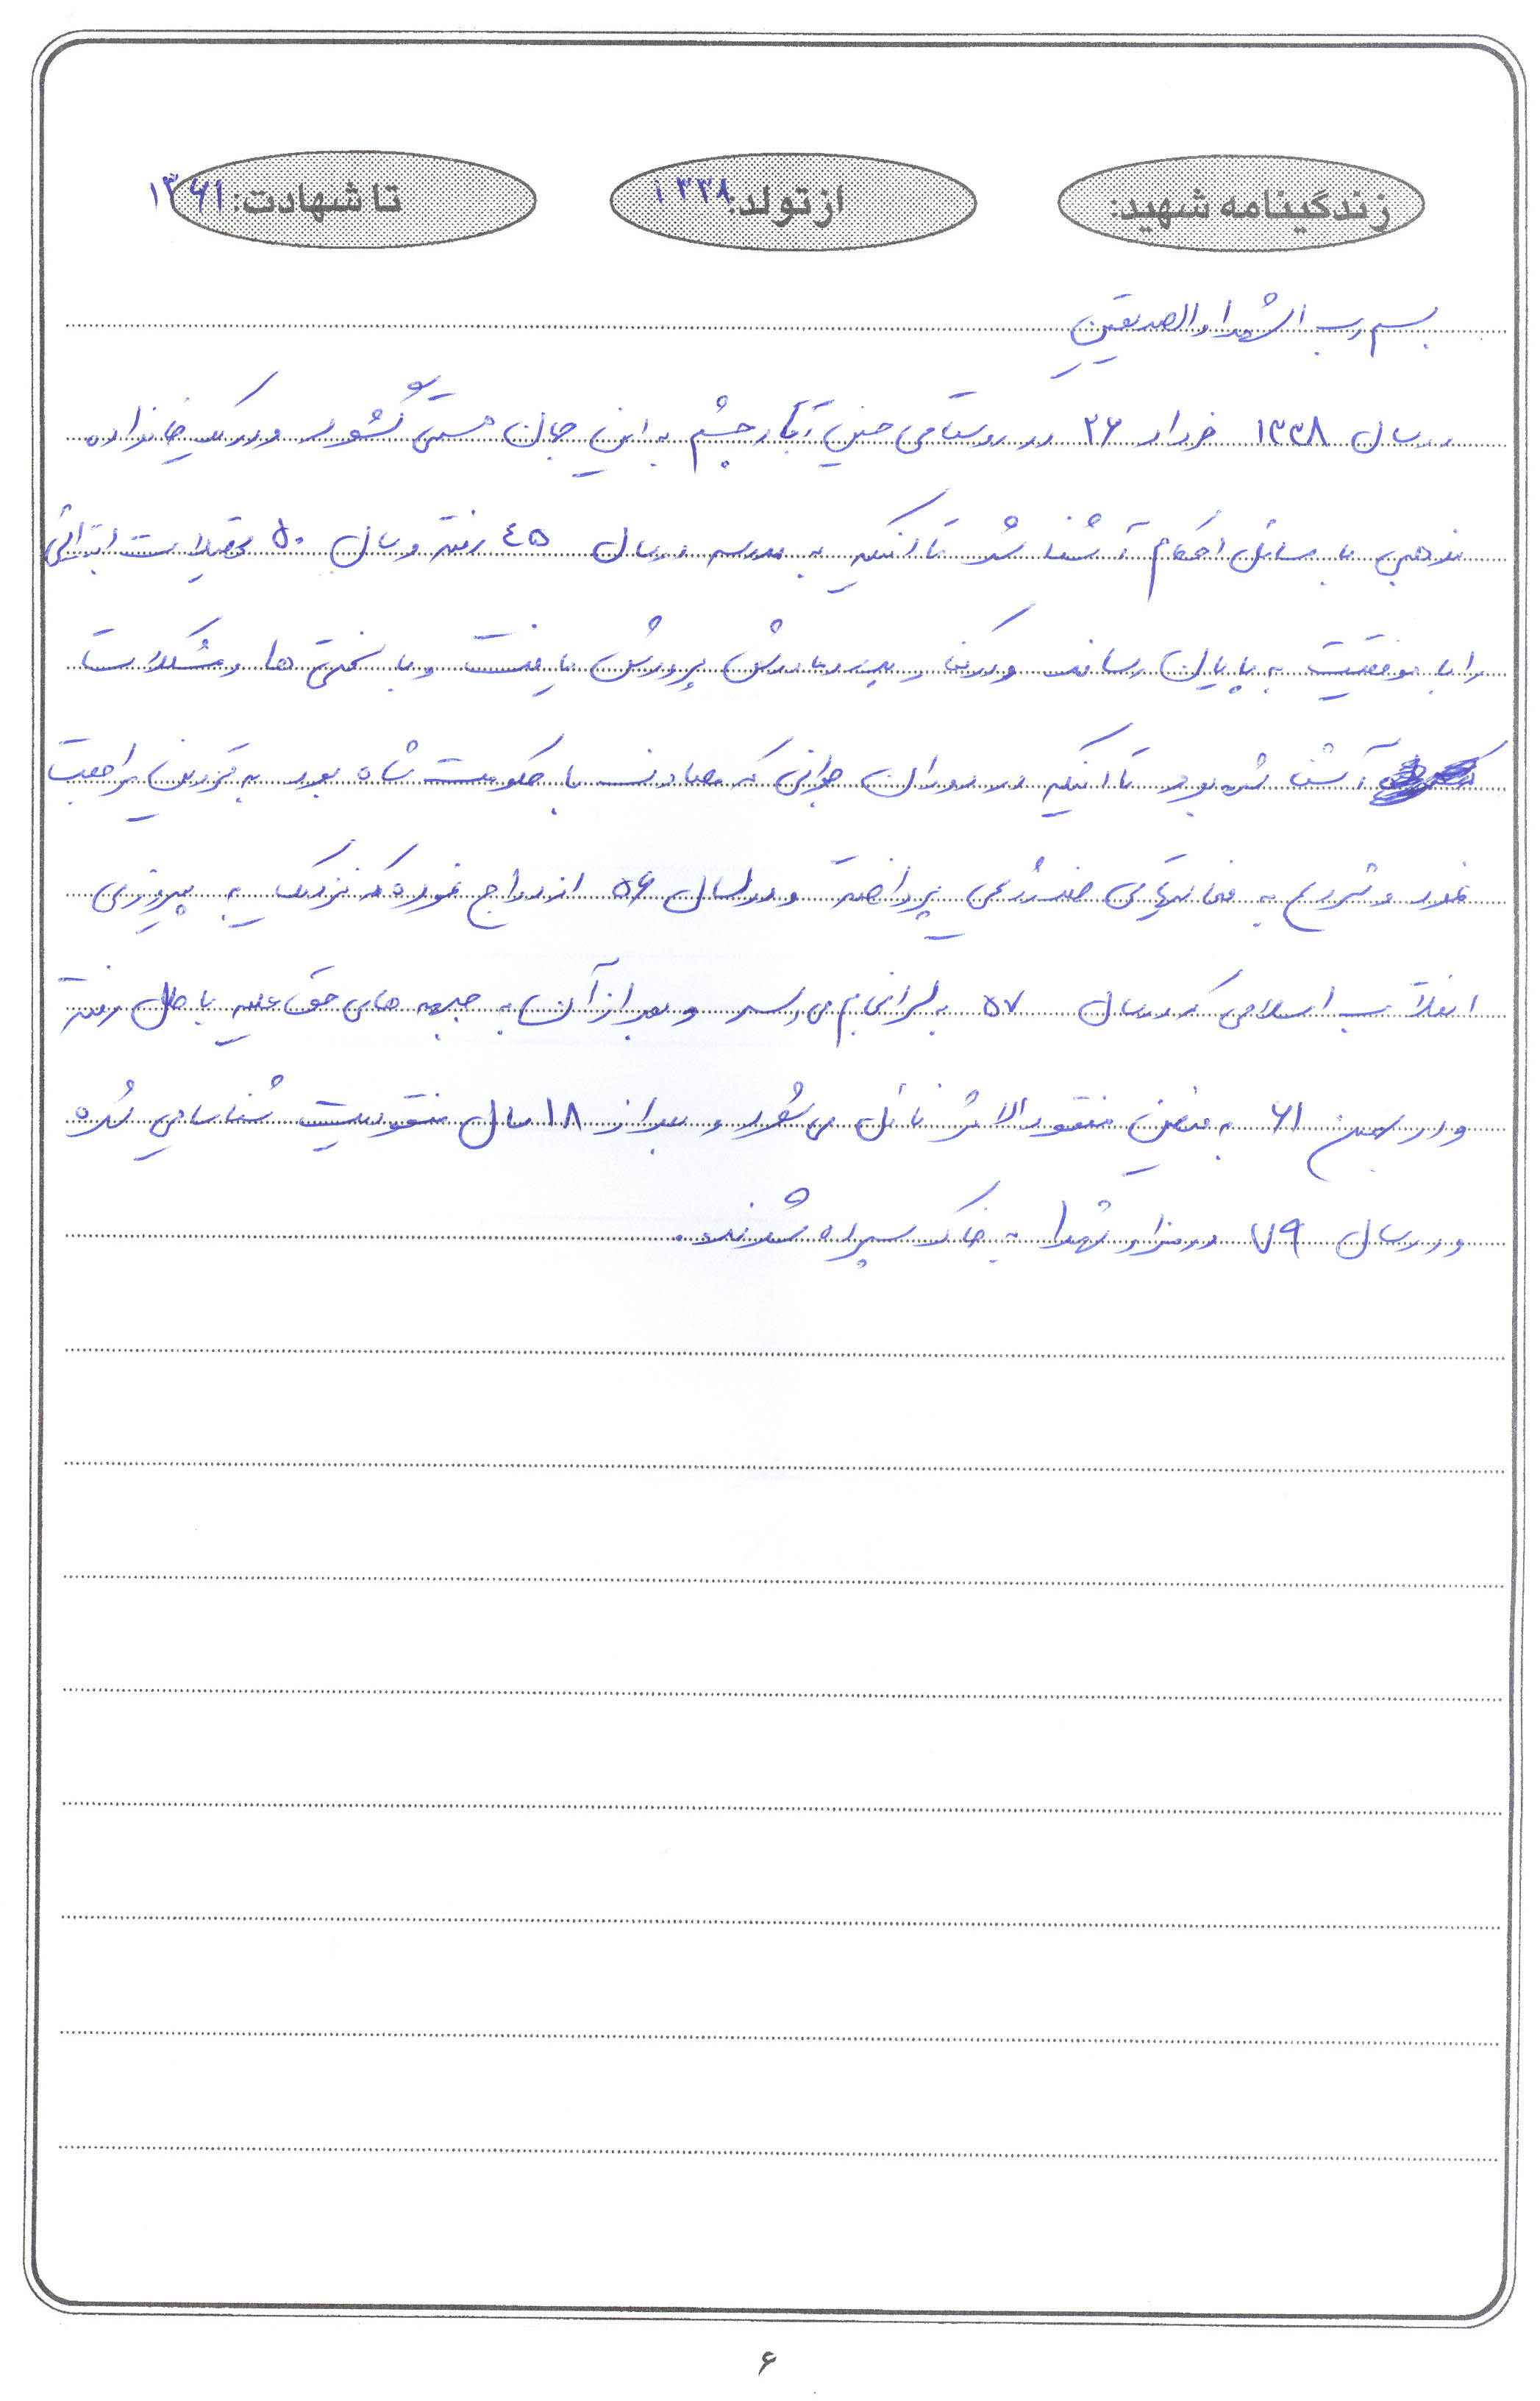 زندگینامه شهید: از تولد: ۱۳۳۸ تا شهادت: ۱۳۶۱
بسم رب الشهدا والصدیقین
در سال ۱۳۳۸ خرداد ۲۶ در روستای حسین آباد چشم به این جهان هستی گشود و در یک خانواده
مذهبی با مسائل احکام آشنا شد تا اینکه به مدرسه در سال ۴۵ رفته و سال ۵۰ تحصیلات ابتدائی
را با موفقیت به پایان رساند و در کنار پدر و مادرش پرورش یافت و با سختی ها و مشکلات
آشنا شده بود تا اینکه در دوران جوانی که مصادف با حکومت شاه بود به قزوین مراجعت
نمود و شروع به فعالیتهای ضد رژیمی پرداخته و در سال ۵۶ ازدواج نموده که نزدیک به پیروزی
انقلاب اسلامی که در سال ۵۷ به سرانجام می رسد و بعد از آن به جبهه های حق علیه باطل رفته
و در بهمن ۶۱ به فیض مفقودالاثر نائل می شود و بعد از ۱۸ سال مفقودیت شناسایی شده
و در سال ۷۹ در مزار شهدا به خاک سپرده شدند.
۶